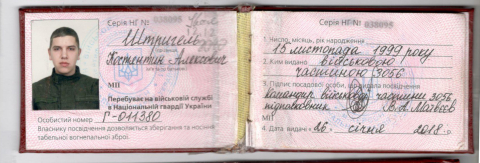 Серія НГ № 038095
Штригель
Костянтин Алекович
МП
Перебуває на військовій службі
в Національній гвардії України
Особистий номер Г-011380
Власнику посвідчення дозволяється зберігання та носіння
табельної вогнепальної зброї.
Серія НГ № 038095
1. Число, місяць, рік народження
15 листопада 1999 року
2. Ким видано військовою
частиною 3056
МП
3. Підпис посадової особи, що видала посвідчення
командир військової частини 3056
підполковник В.А. Матвєєв
4. Дата видачі «26» січня 2018 р.